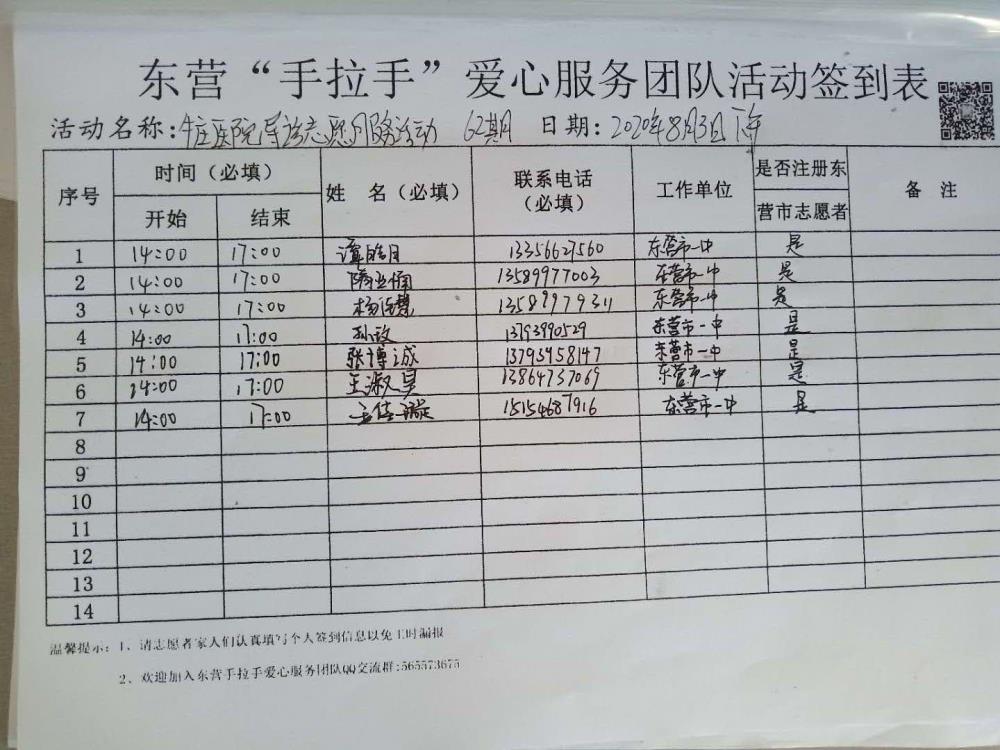 东营“手拉手”爱心服务团队活动签到表
活动名称: 医院导诊志愿服务活动 62期 日期: 2020年8月3日下午
序号 时间(必填) 姓 名(必填) 联系电话(必填) 工作单位 是否注册东营市志愿者 备 注
开始 结束
1 14:00 17:00 13356627560 东营市一中 是
2 14:00 17:00 13589977003 东营市一中 是
3 14:00 17:00 13589979311 东营市一中 是
4 14:00 17:00 孙政 13793990529 东营市一中 是
5 14:00 17:00 张博诚 13795458147 东营市一中 是
6 14:00 17:00 王淑昊 13864737069 东营市一中 是
7 14:00 17:00 15154687916 东营市一中 是
8
9
10
11
12
13
14
温馨提示: 1、请志愿者家人们认真填写个人签到信息以免工时漏报
2、欢迎加入东营手拉手爱心服务团队QQ交流群:565573675